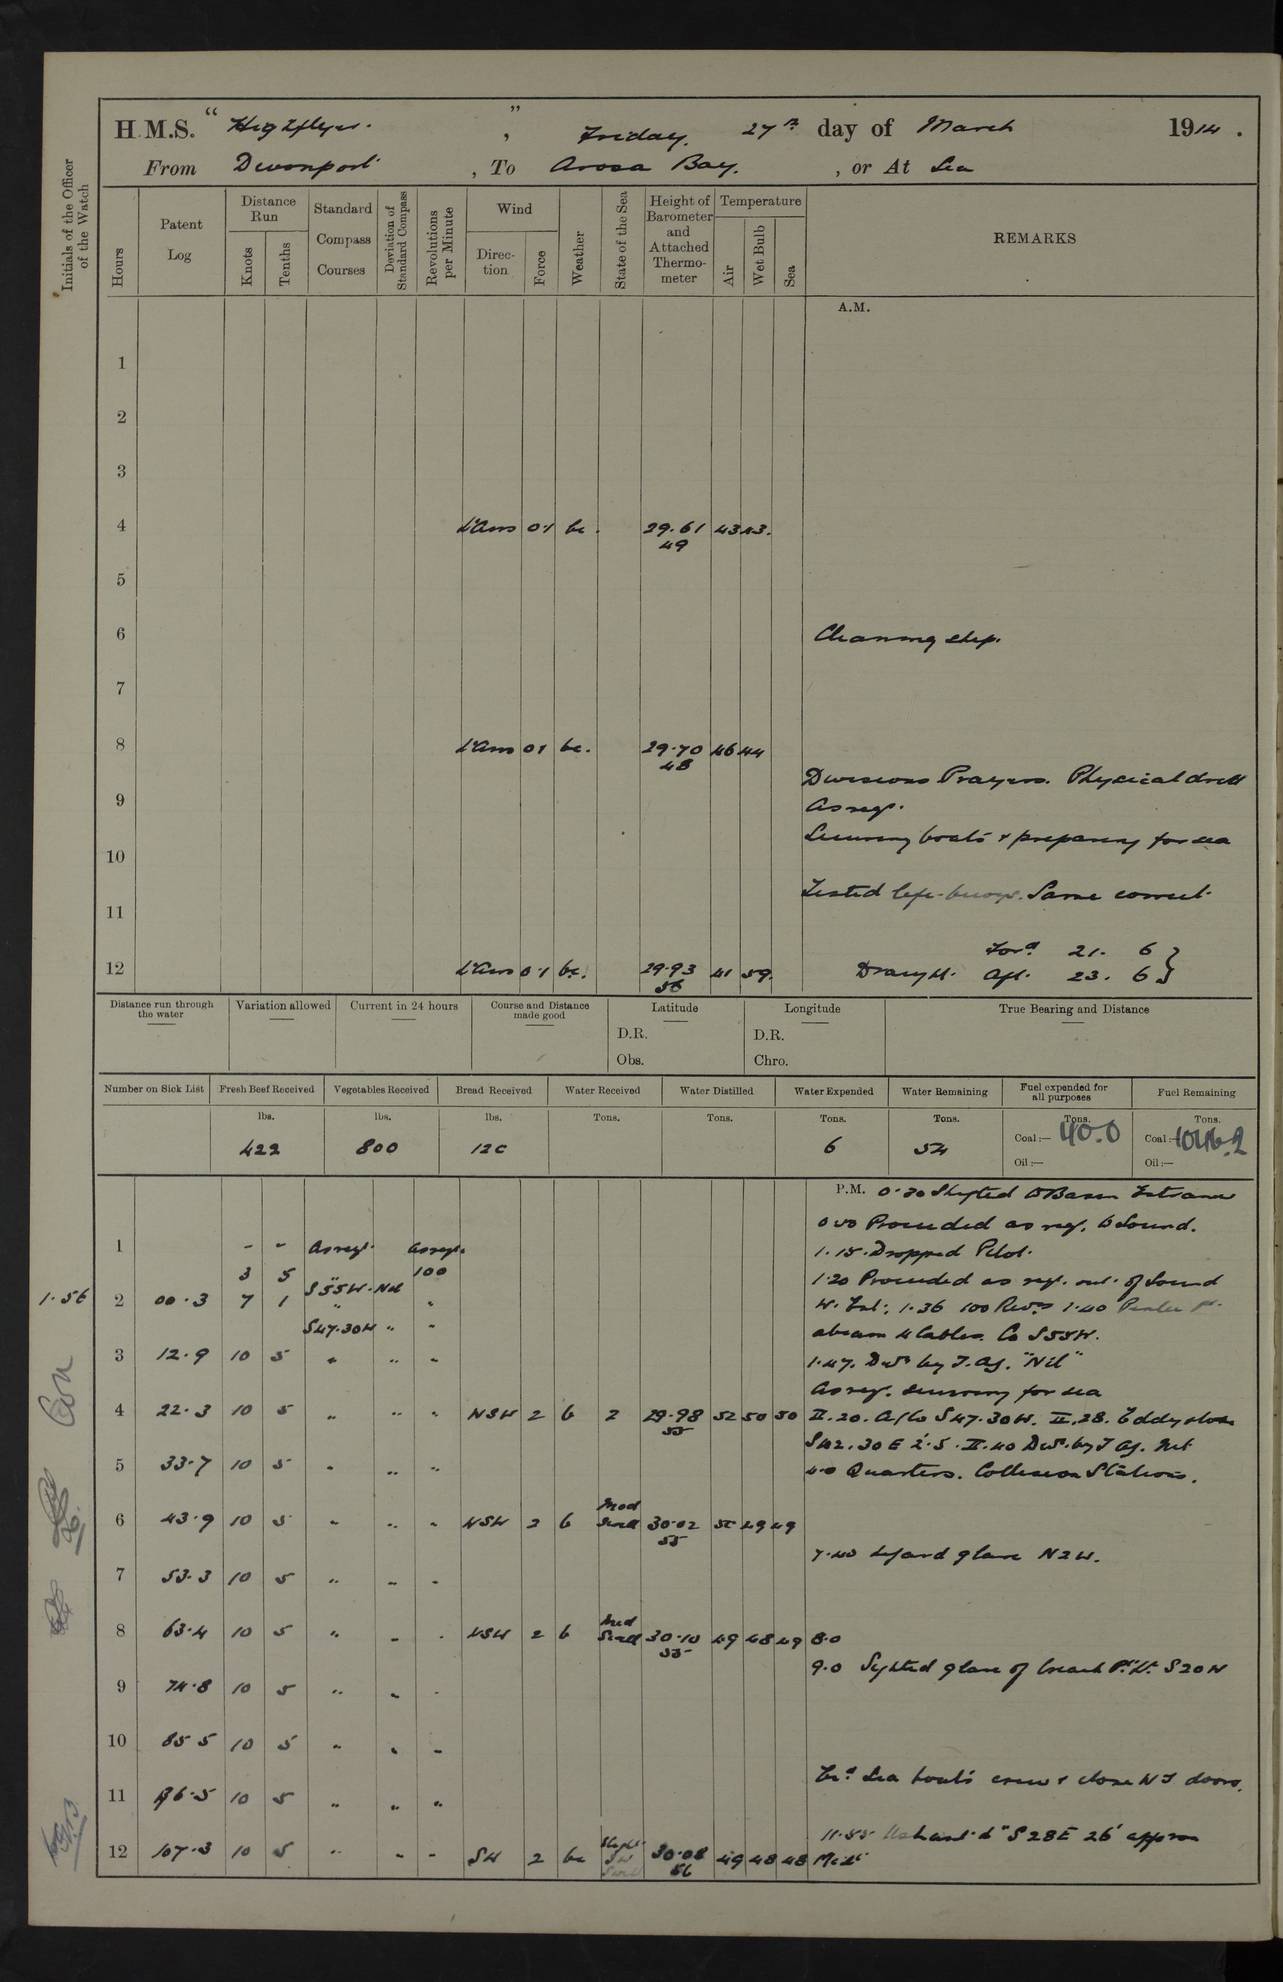 H.M.S. "Highflyer. ", Friday, 27th day of March 1914.
From Devonport, To Arosa Bay, or At Sea
Initials of the Officer of the Watch
Hours
Patent Log
Distance Run
Knots
Tenths
Standard Compass Courses
Deviation of Standard Compass
Revolutions per Minute
Wind
Direction
Force
Weather
State of the Sea
Height of Barometer and Attached Thermometer
Temperature
Air
Wet Bulb
Sea
REMARKS
A.M.
1
2
3
4 Vars 0.1 bc. 29.61 43 43.
49
5
6 Cleaning ship.
7
8 Vars 0.1 bc. 29.70 46 44
48
Divisions Prayers. Physical drill
9
As req.
Securing boats & preparing for sea
10
Tested life-buoys. Same correct.
11
Ford 21. 6 }
12 Vars 0.1 bc. 29.93 41 59. Draught. Aft. 23. 6 }
56
Distance run through the water
Variation allowed
Current in 24 hours
Course and Distance made good
Latitude
D.R.
Obs.
Longitude
D.R.
Chro.
True Bearing and Distance
Number on Sick List
Fresh Beef Received
Vegetables Received
Bread Received
Water Received
Water Distilled
Water Expended
Water Remaining
Fuel expended for all purposes
Fuel Remaining
lbs. lbs. lbs. Tons. Tons. Tons. Tons. Tons. Tons.
422 800 120 6 54 Coal:— 40.0 Coal:— 1046.2
Oil:— Oil:—
P.M. 0.30 Shifted to Basin Entrance
0.50 Proceeded as req. to Sound.
1 - - As reqt. As reqt. 1.15. Dropped Pilot.
3 5 100 1.20 Proceeded as reqt. out of Sound
S55W. Nil
1.56 2 00.3 7 1 " " W. Ent: 1.36 100 Revs 1.40 Penlee Pt.
S47.30W " " abeam 4 Cables. Co S55W.
3 12.9 10 5 " " " 1.47. Devn by T. Az. "Nil"
As req. securing for sea
4 22.3 10 5 " " " NSW 2 b 2 29.98 52 50 50 II.20. A/Co S47.30W. II.28. Eddystone
55
S42.30E 2'.5. II.40 Devn. by T Az. Nil
5 33.7 10 5 " " " 4.0 Quarters. Collision Stations.
6 43.9 10 5 " " " WSW 2 b Mod Swell 30.02 50 49 49
55
7.40 Lizard glare N2W.
7 53.3 10 5 " " "
8 63.4 10 5 " " " WSW 2 b Mod Swell 30.10 49 48 49 8.0
55
9.0 Sighted glare of Creach Pt. Lt. S20W
9 74.8 10 5 " " "
10 85.5 10 5 " " "
Exd. Sea boat's crew & close WT doors.
11 96.5 10 5 " " "
11.55 Ushant Lt S28E 26' approx
12 107.3 10 5 " " " SW 2 bc Slight SW Swell 30.08 49 48 48 Midt
56